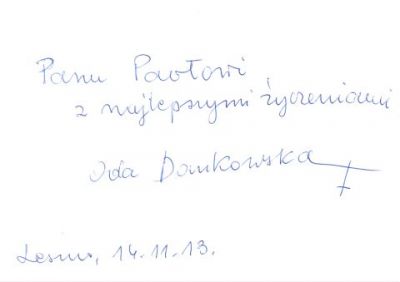 Panu Pawłowi
z najlepszymi życzeniami
Ida Dankowska
Leszno, 14.11.13.